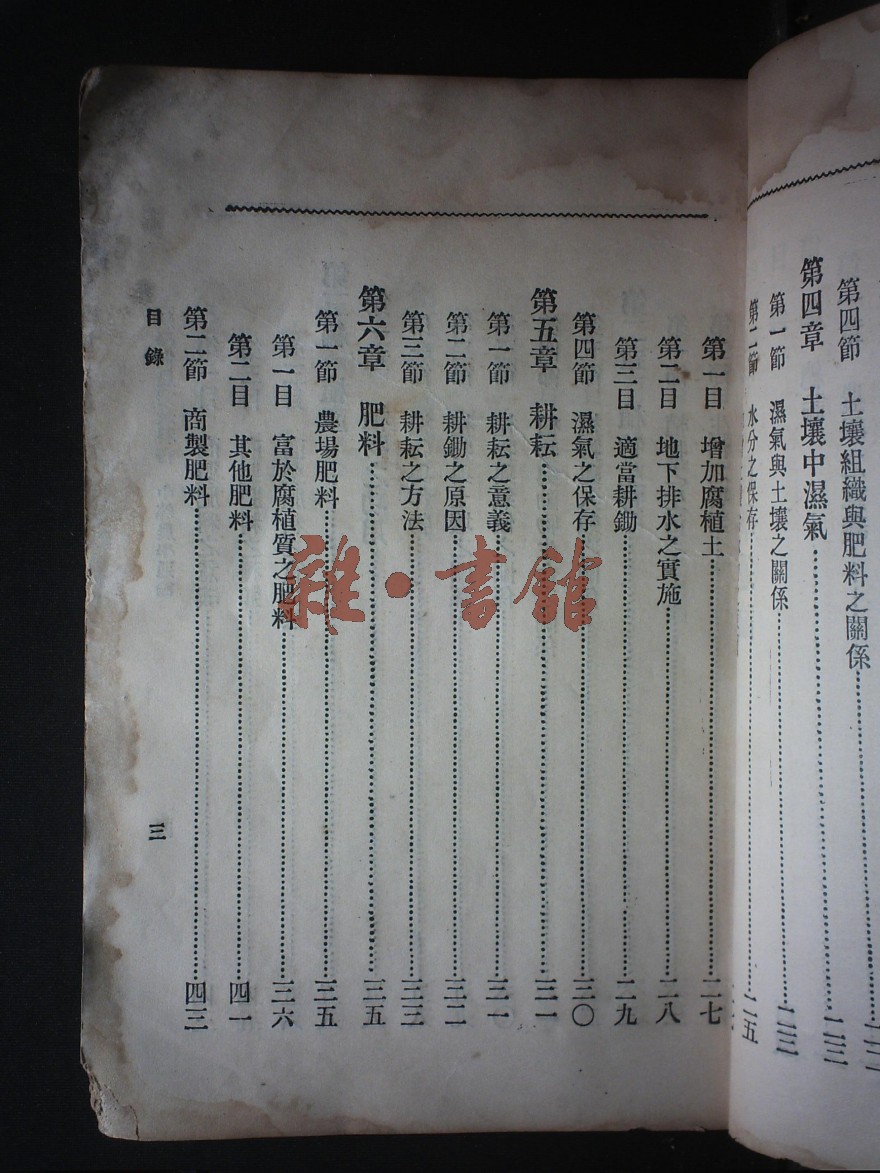 第四節　土壤組織與肥料之關係
第四章　土壤中濕氣…二三
第一節　濕氣與土壤之關係…二三
第二節　水分之保存…二五
第一目　增加腐植土…二七
第二目　地下排水之實施…二八
第三目　適當耕鋤…二九
第四節　濕氣之保存…三〇
第五章　耕耘…三一
第一節　耕耘之意義…三一
第二節　耕鋤之原因…三二
第三節　耕耘之方法…三三
第六章　肥料…三五
第一節　農場肥料…三五
第一目　富於腐植質之肥料…三六
第二目　其他肥料…四一
第二節　商製肥料…四三
目錄
三
雜·書館